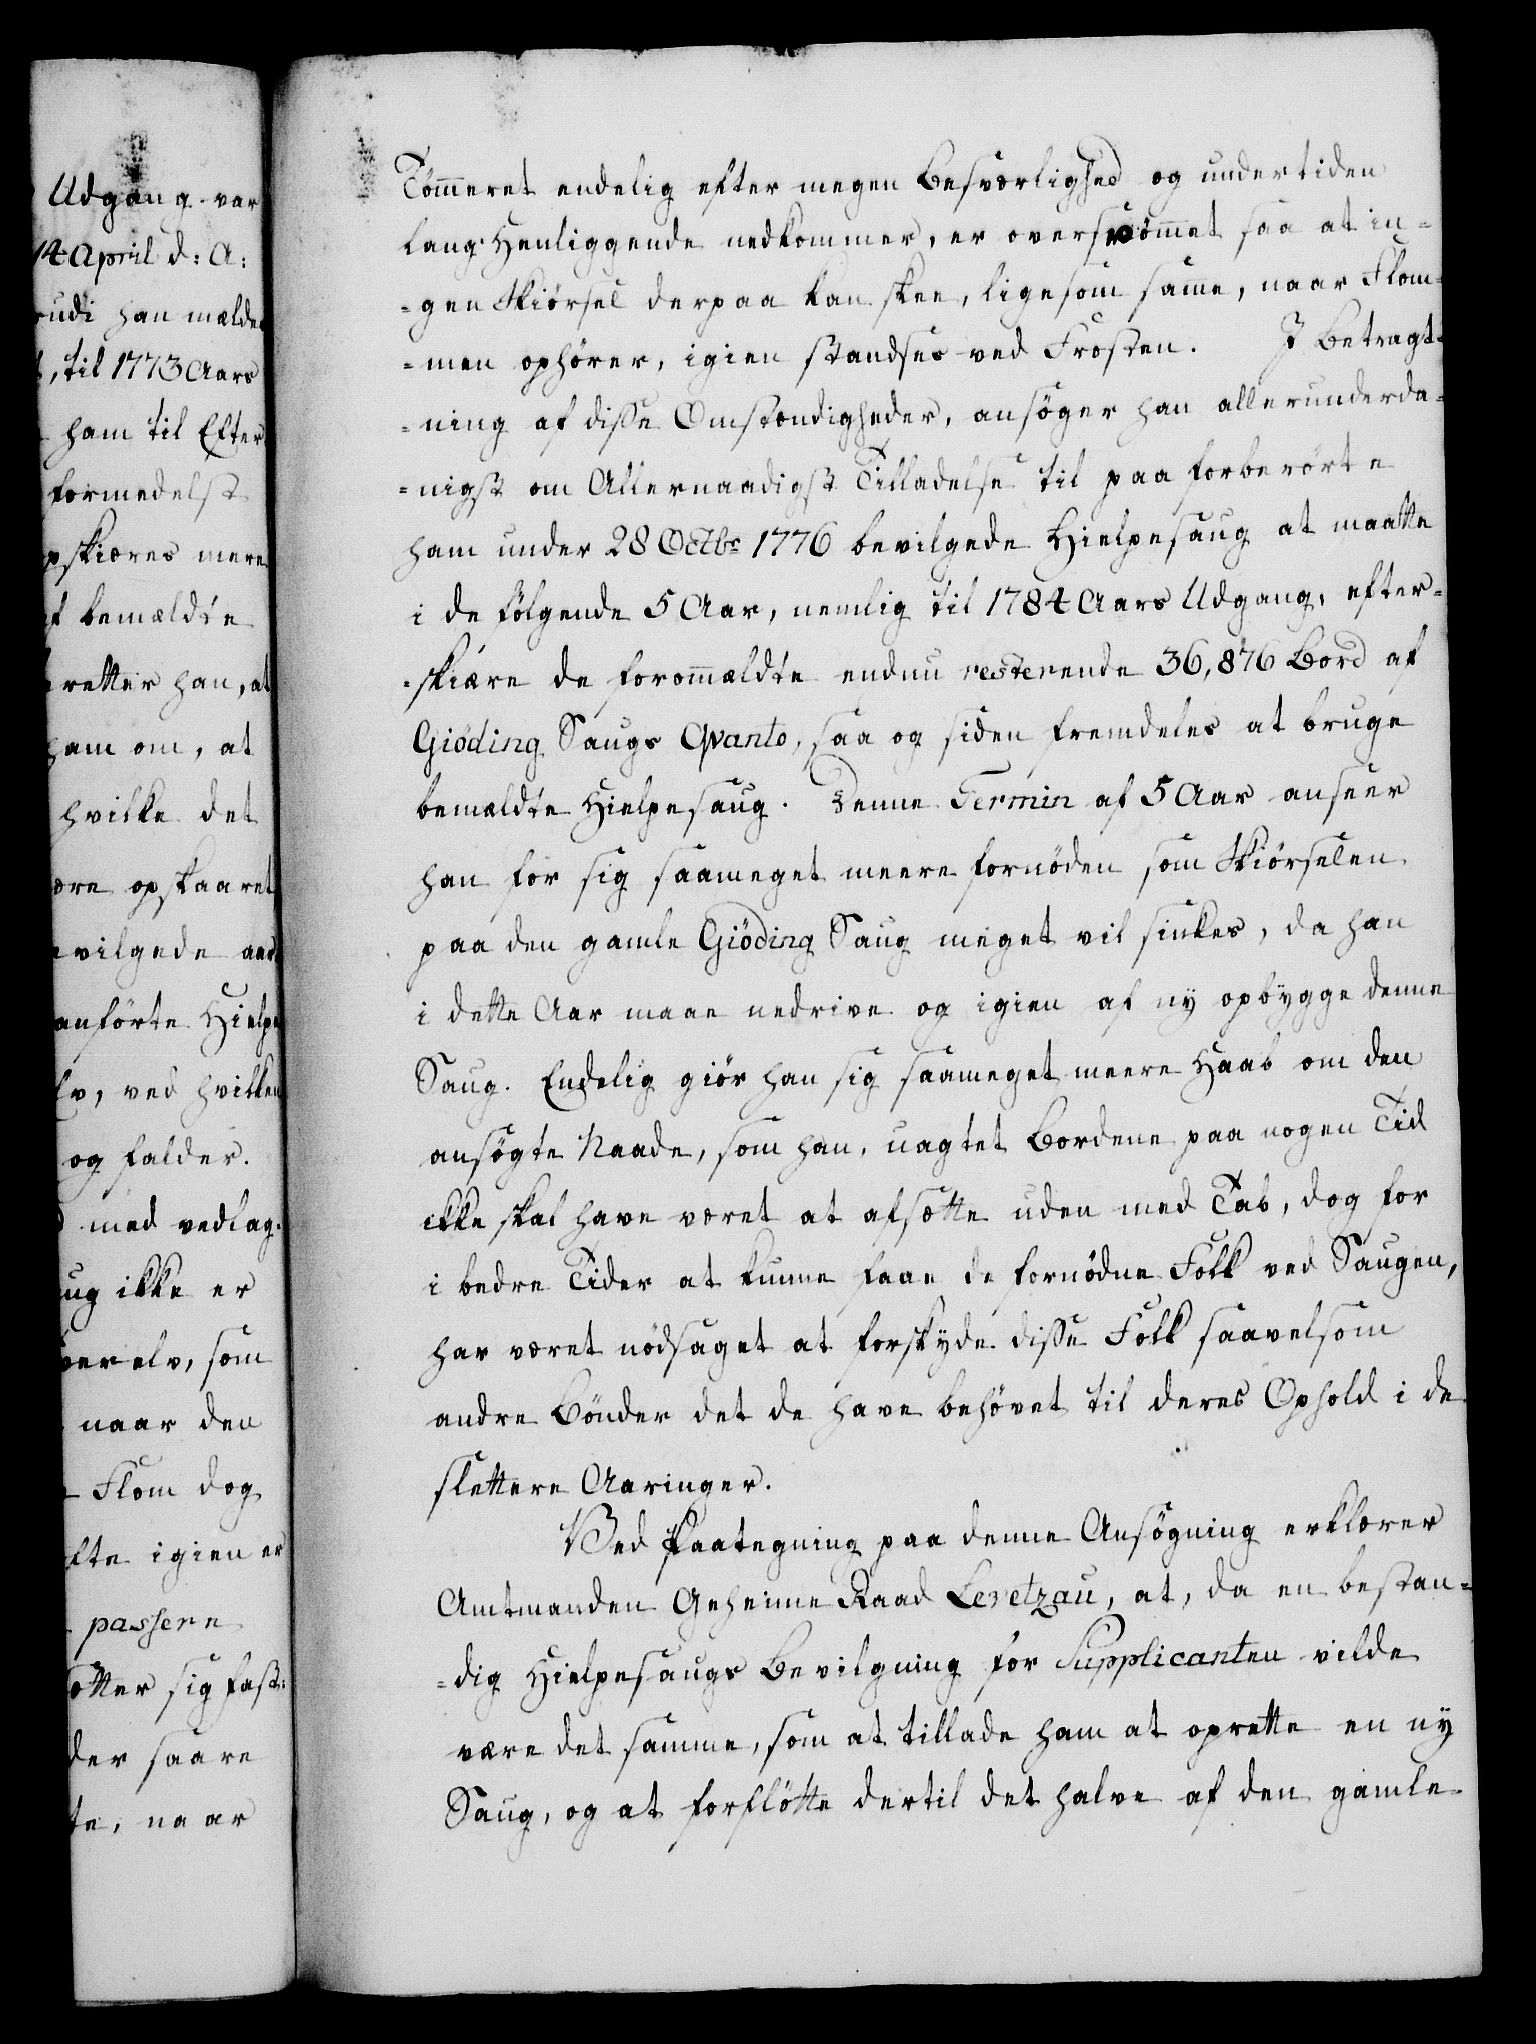 Udgang var
14 April d: A:
han mælder
til 1773 Aars
ham til Efter
formedelst
skiæres mere
bemældte
retter han, at
ham om, at
hvilke det
opskaaret
vilgede
anførte Hielpe
ved hvilken
og falder.
med vedlag
ikke er
elv, som
naar den
Flom dog
igien er
passere
sig fast
der saare
naar
Tømmeret endelig efter megen Besværlighed og undertiden
lang Henliggende nedkommer, er oversvømmet saa at in-
-gen Skiørsel derpaa kan skee, ligesom samme, naar Flom-
-men ophører, igien standses ved Frosten. I Betragt-
-ning af disse Omstændigheder, ansøger han allerunderda-
-nigst om Allernaadigst Tilladelse til paa forberørte
ham under 28 Octbr 1776 bevilgede Hielpesaug at maatte
i de følgende 5 Aar, nemlig til 1784 Aars Udgang, efter-
-skiære de forommældte endnu resterende 36,876 Bord af
Giöding Saugs Qvanto, saa og siden fremdeles at bruge
bemældte Hielpesaug. Denne Termin af 5 Aar anseer
han for sig saameget meere fornøden som Skiørselen
paa den gamle Giöding Saug meget vil sinkes, da han
i dette Aar maae nedrive og igien af ny opbygge denne
Saug. Endelig giør han sig saameget meere Haab om den
ansøgte Naade, som han, uagtet Bordene paa nogen Tid
ikke skal have været at afsætte uden med Tab, dog for
i bedre Tider at kunne faae de fornødne Folk ved Saugen,
har været nødsaget at forskyde disse Folk saavelsom
andre Bønder det de have behøvet til deres Ophold i de
slettere Aaringer.
Ved Paategning paa denne Ansøgning erklærer
Amtmanden Geheime Raad Levetzau, at, da en bestan-
-dig Hielpesaugs Bevilgning for Supplicanten vilde
være det samme, som at tillade ham at oprette en ny
Saug, og at forflötte dertil det halve af den gamle